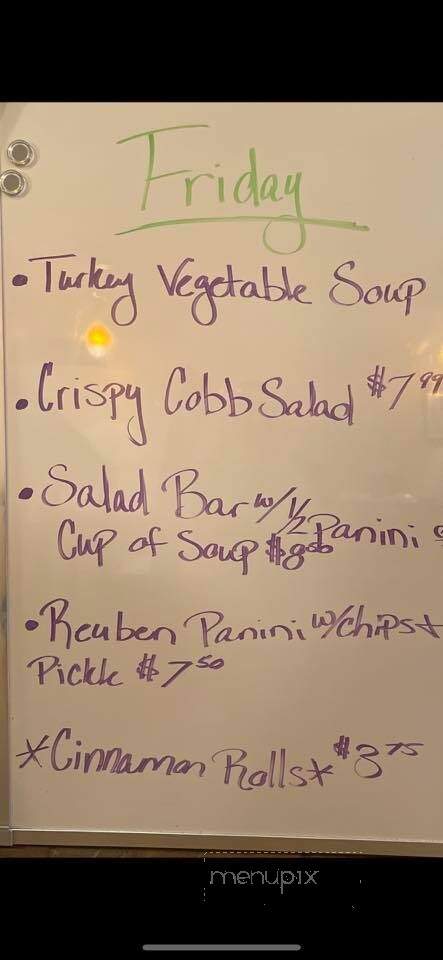 Friday
• Turkey Vegetable Soup
• Crispy Cobb Salad $7 99
• Salad Bar w/ 1/2 Panini
Cup of Soup $8 50
• Reuben Panini w/ chips +
Pickle $7 50
*Cinnamon Rolls* $3 75
menupix